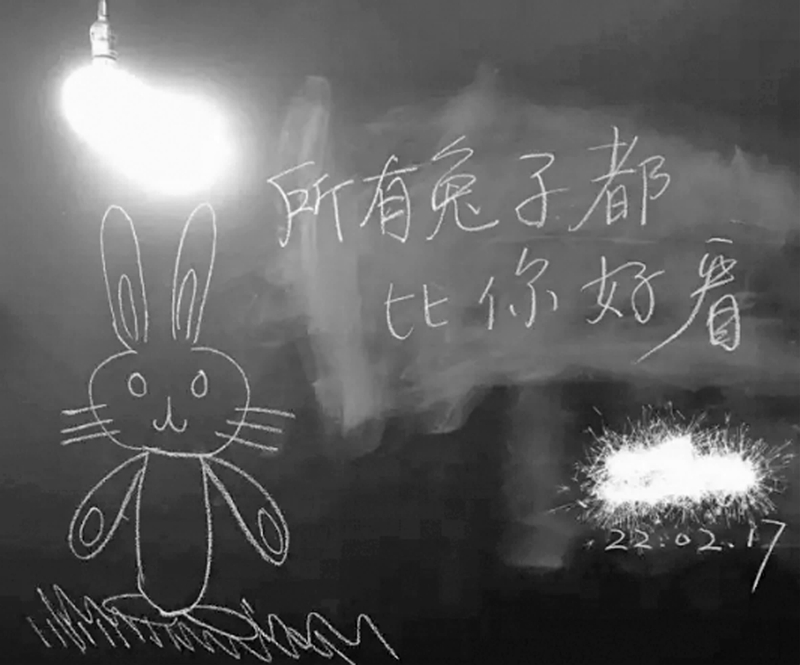 所有兔子都
比你好看
22.02.17